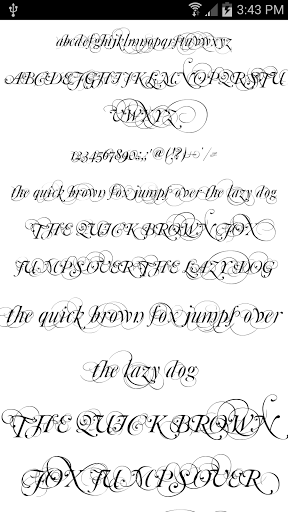 3:43 PM
abcdefghijklmnopqrstuvwxyz
ABCDEFGHIJKLMNOPQRSTU
VWXYZ
1234567890.:,;'"@(!?)-+'/=
the quick brown fox jumps over the lazy dog
THE QUICK BROWN FOX
JUMPS OVER THE LAZY DOG
the quick brown fox jumps over
the lazy dog
THE QUICK BROWN
FOX JUMPS OVER